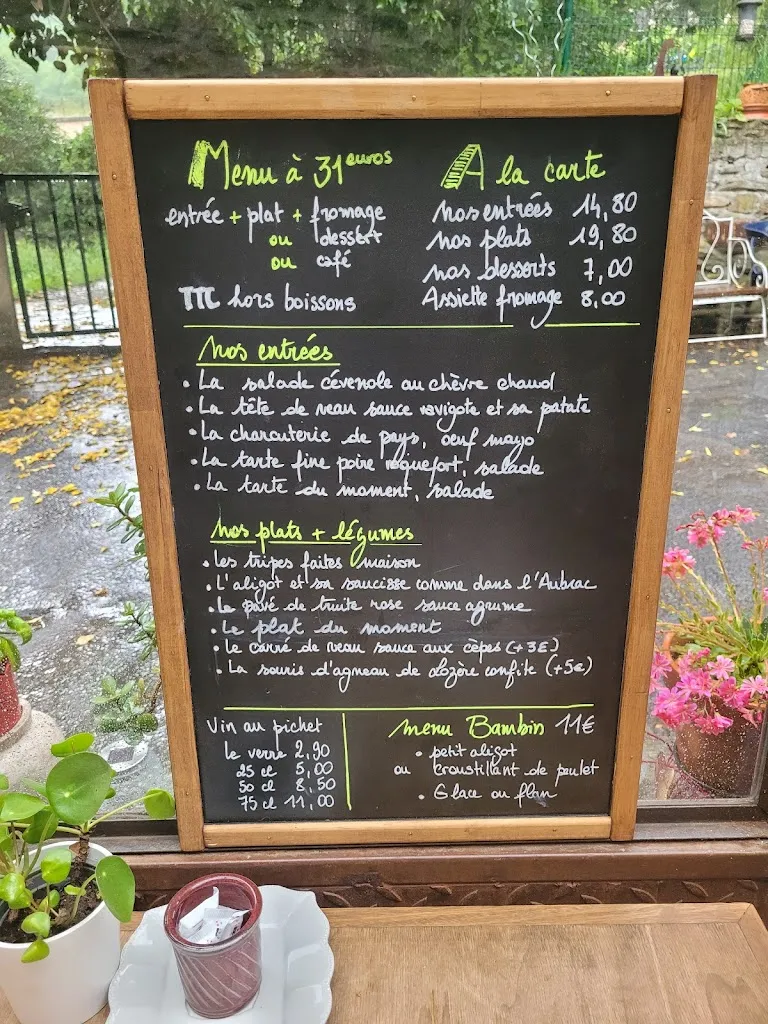 Menu à 31 euros
entrée + plat + fromage
ou dessert
ou café
TTC hors boissons
A la carte
nos entrées 14,80
nos plats 19,80
nos desserts 7,00
Assiette fromage 8,00
Nos entrées
• La salade cévenole au chèvre chaud
• La tête de veau sauce ravigote et sa patate
• La charcuterie de pays, oeuf mayo
• La tarte fine poire roquefort, salade
• La tarte du moment, salade
Nos plats + légumes
• Les tripes faites maison
• L'aligot et sa saucisse comme dans l'Aubrac
• Le pavé de truite rose sauce agrume
• Le plat du moment
• Le carré de veau sauce aux cèpes (+3€)
• La souris d'agneau de Lozère confite (+5€)
Vin au pichet
le verre 2,90
25 cl 5,00
50 cl 8,50
75 cl 11,00
Menu Bambin 11€
• petit aligot
ou croustillant de poulet
• Glace ou flan